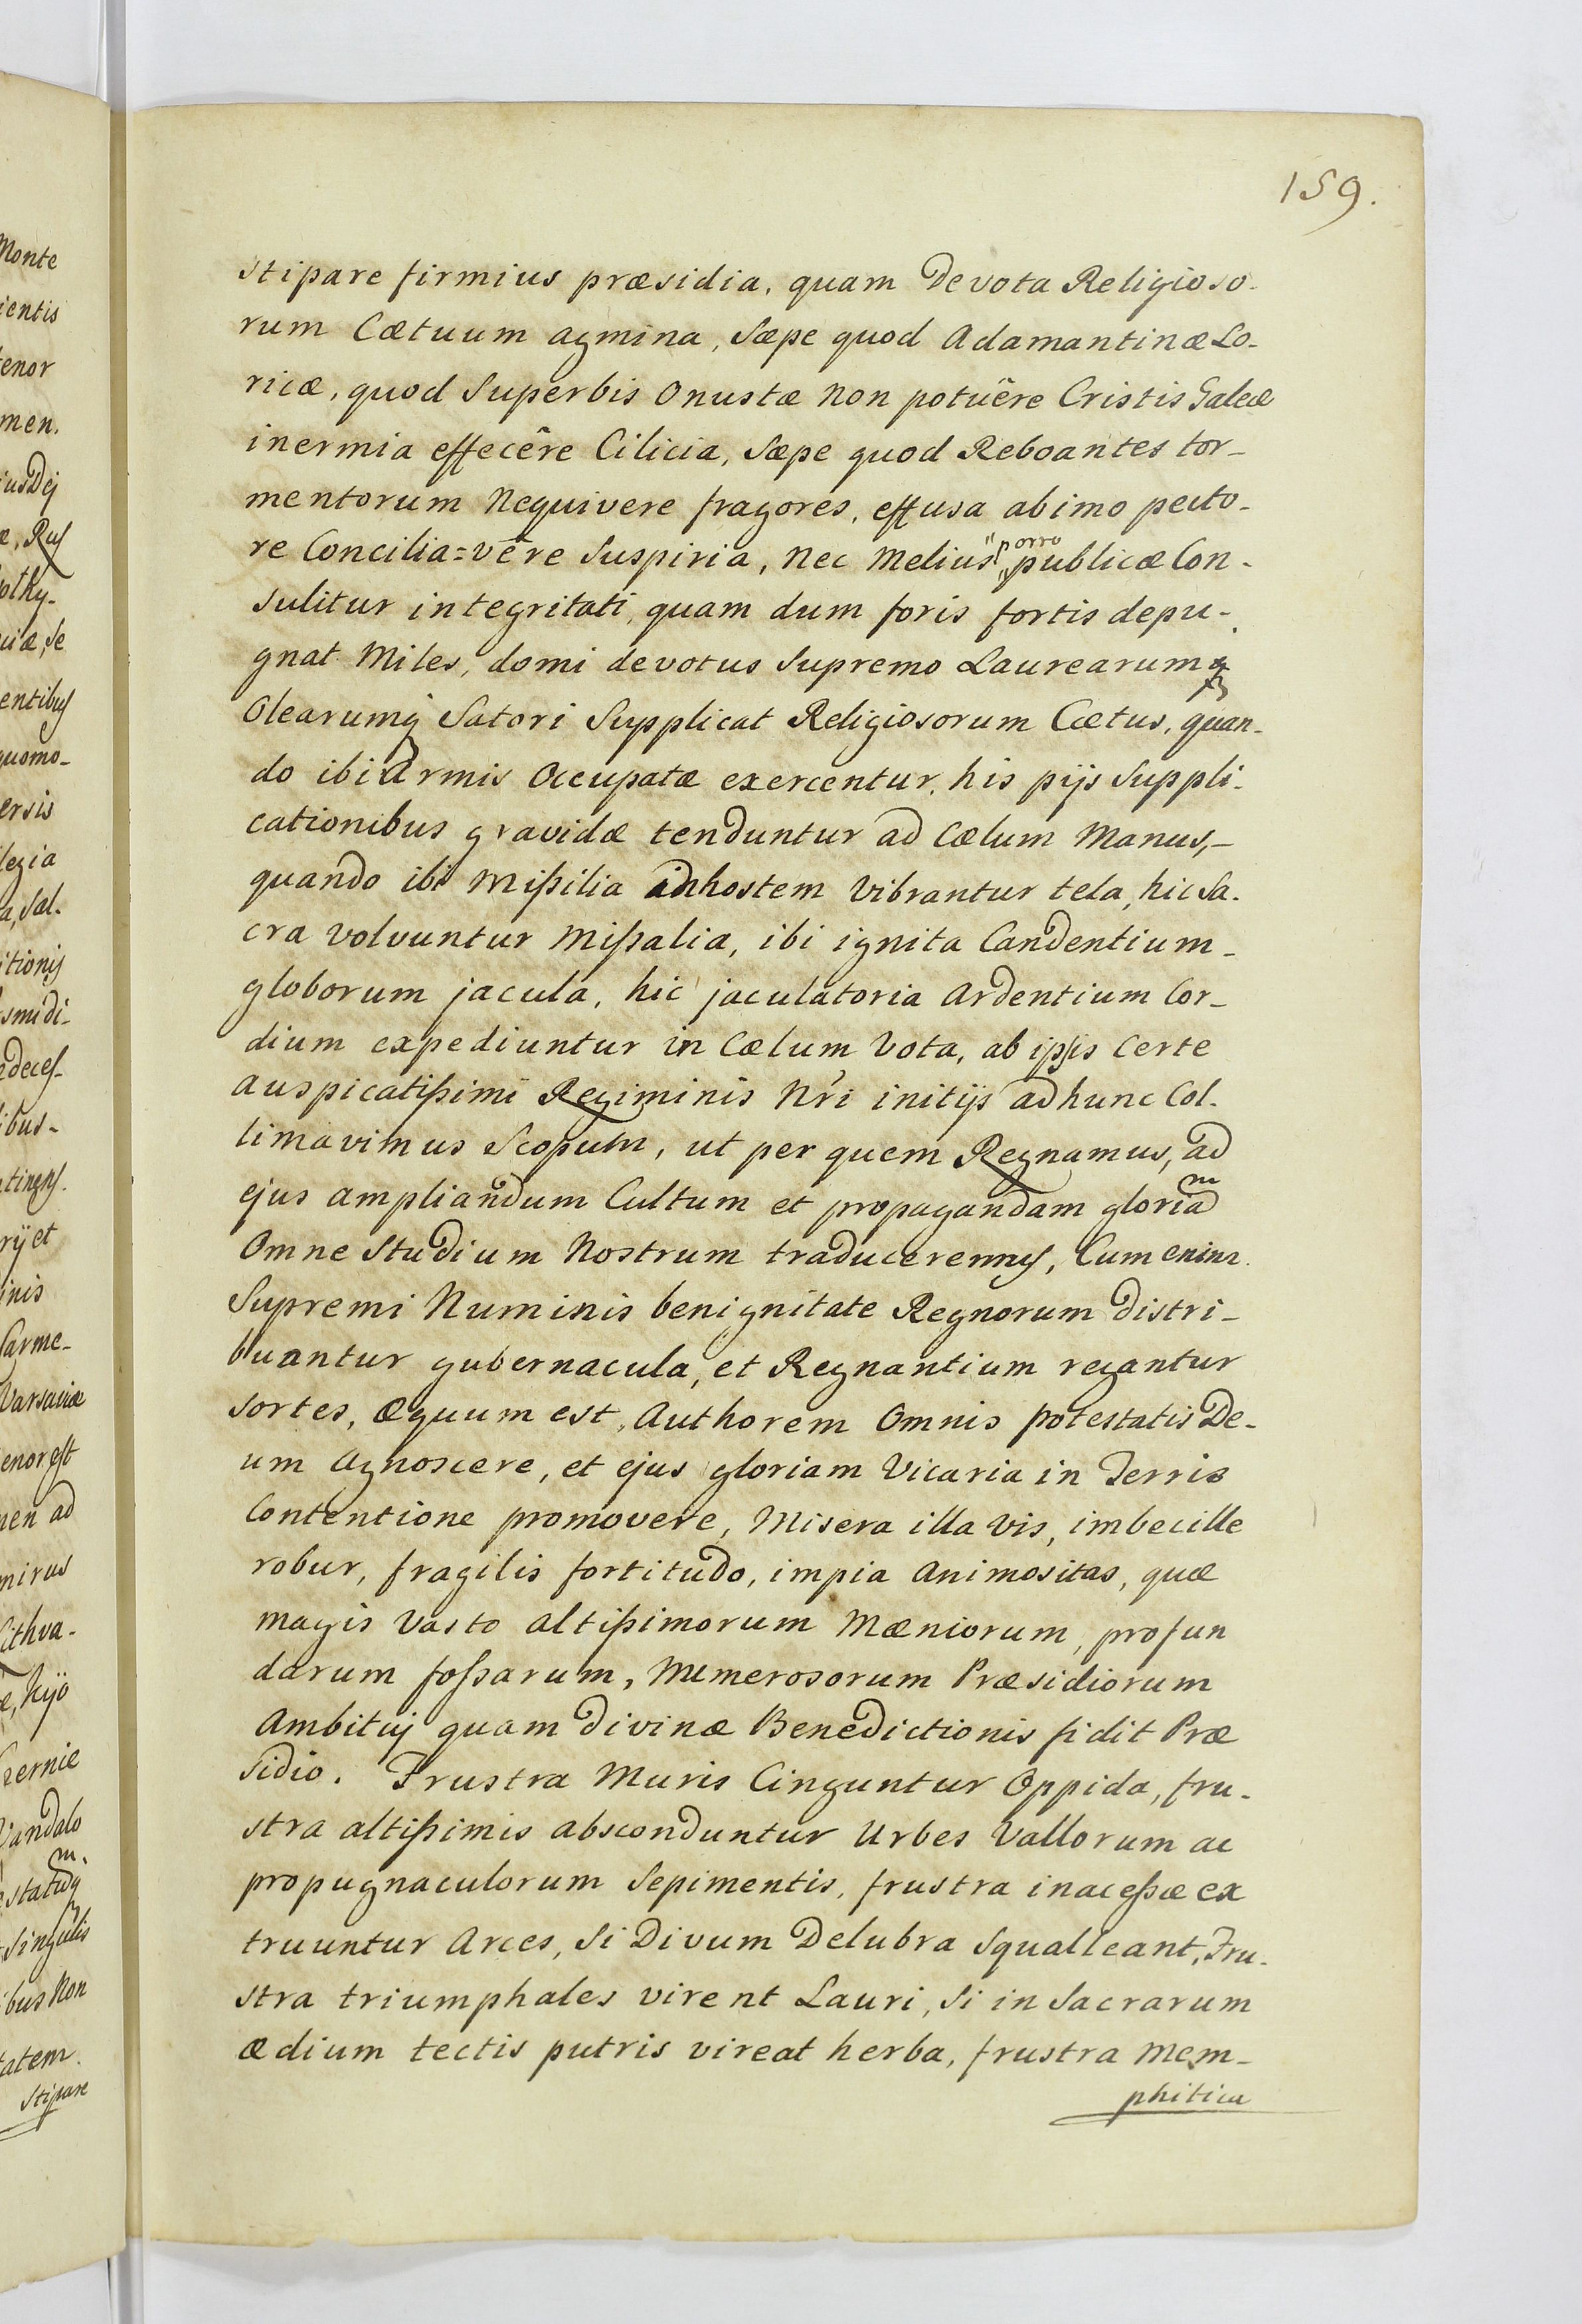 159.
stipare firmius præsidia, quam Devota Religioso-
rum Cætuum agmina, Sæpe quod Adamantinæ Lo-
ricæ, quod Superbis Onustæ Non potuêre Cristis Galeæ
inermia effecêre Cilicia, Sæpe quod Reboantes tor-
mentorum Nequivere fragores, effusa ab imo pecto-
re Concilia=vêre Suspiria, Nec Melius porro publicæ Con-
sulitur integritati, quam dum foris fortis depu-
gnat Miles, domi devotus Supremo Laurearumq
Olearumq Satori Supplicat Religiosorum Cætus, quan-
do ibi Armis Occupatæ exercentur, his pijs Suppli-
cationibus gravidæ tenduntur ad Cælum Manus,-
quando ibi Mißilia in hostem Vibrantur tela, hic Sa-
cra Volvuntur Mißalia, ibi ignita Candentium-
globorum jacula, hic jaculatoria Ardentium Cor-
dium expediuntur in Cælum Vota, ab ipsis Certe
auspicatißimi Regiminis Nri initijs ad hunc Col-
limavimus Scopum, ut per quem Regnamus, ad
ejus ampliandum Cultum et propagandam gloriam
Omne Studium Nostrum traduceremus, Cum enim
Supremi Numinis benignitate Regnorum distri-
buantur gubernacula, et Regnantium regantur
sortes, æquum est, Authorem Omnis potestatis De-
um Agnoscere, et ejus gloriam Vicaria in Terris
Contentione promovere, Misera illa Vis, imbecille
robur, fragilis fortitudo, impia Animositas, quæ
magis Vasto altißimorum Mæniorum, profun
darum foßarum, Numerosorum Præsidiorum
Ambitui quam Divinæ Benedictionis fidit Præ
sidio. Frustra Muris Cinguntur Oppida, fru-
stra altißimis absconduntur Urbes Vallorum ac
propugnaculorum Sepimentis, frustra inaceßæ ex
truuntur Arces, Si Divum Delubra Squalleant, Fru-
stra triumphales virent Lauri, Si in Sacrarum
ædium tectis putris vireat herba, frustra Mem-
phitica